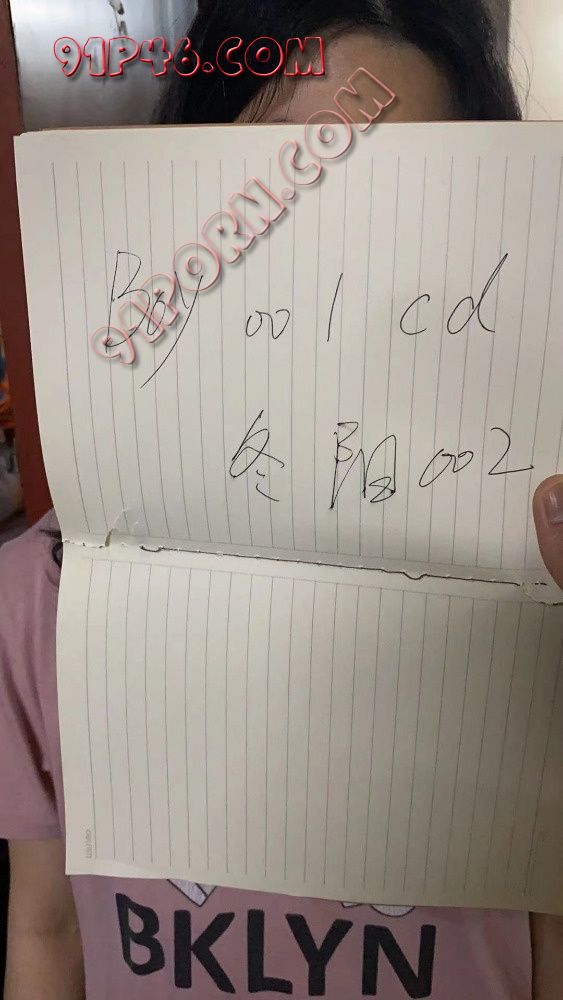 91P46.COM
91PORN.COM
Boy 001 cd
冬阳002
BKLYN